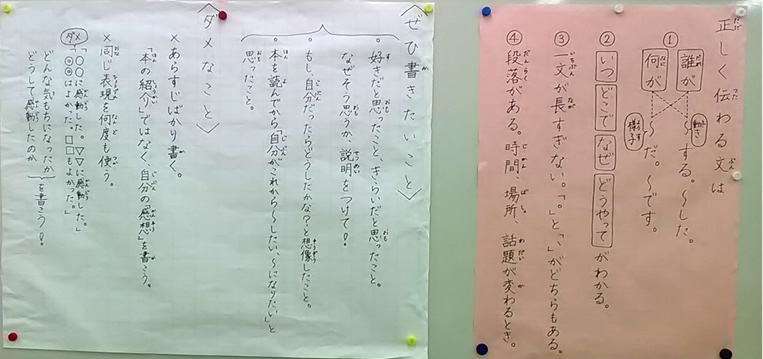 正しく伝わる文は
① 誰が 何が
動き 〜する。〜した。
様子 〜だ。〜です。
② いつ どこで なぜ どうやって がわかる。
③ 一文が長すぎない。「。」と「、」がどちらもある。
④ 段落がある。時間、場所、話題が変わるとき。
〈ぜひ書きたいこと〉
。好きだと思ったこと、きらいだと思ったこと。
なぜそう思うか、説明をつけて!!
。もし、自分だったらどうしたかな?と想像したこと。
。本を読んでから「自分がこれから〜したい、〜になりたい」と
思ったこと。
〈ダメなこと〉
×あらすじばかり書く。
「本の紹介」ではなく、自分の「感想」を書こう。
×同じ表現を何度も使う。
ダメ 「○○に感動した。▽▽に感動した。」
「◎◎はよかった。□□もよかった。」
どんな気もちになったか
どうして感動したのか
を書こう!!